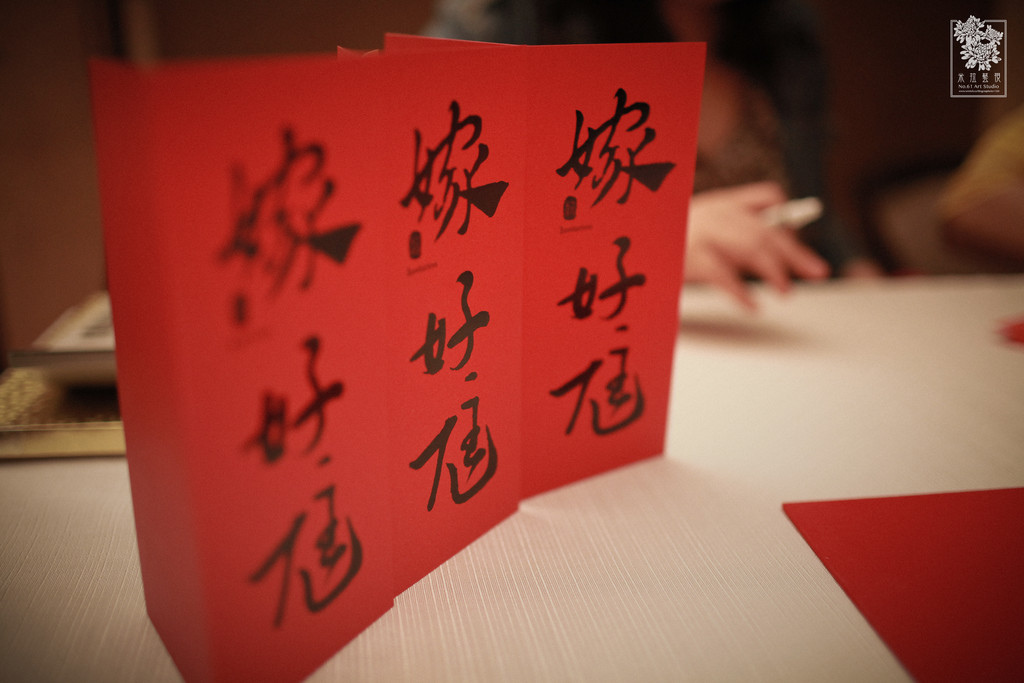 嫁好尪
嫁好尪
嫁好尪
No.61 Art Studio